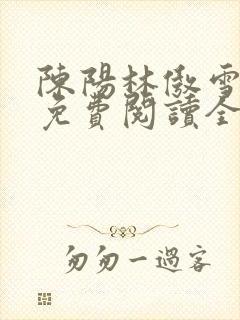 陳陽林傲雪
免費閱讀全
匆匆一過客